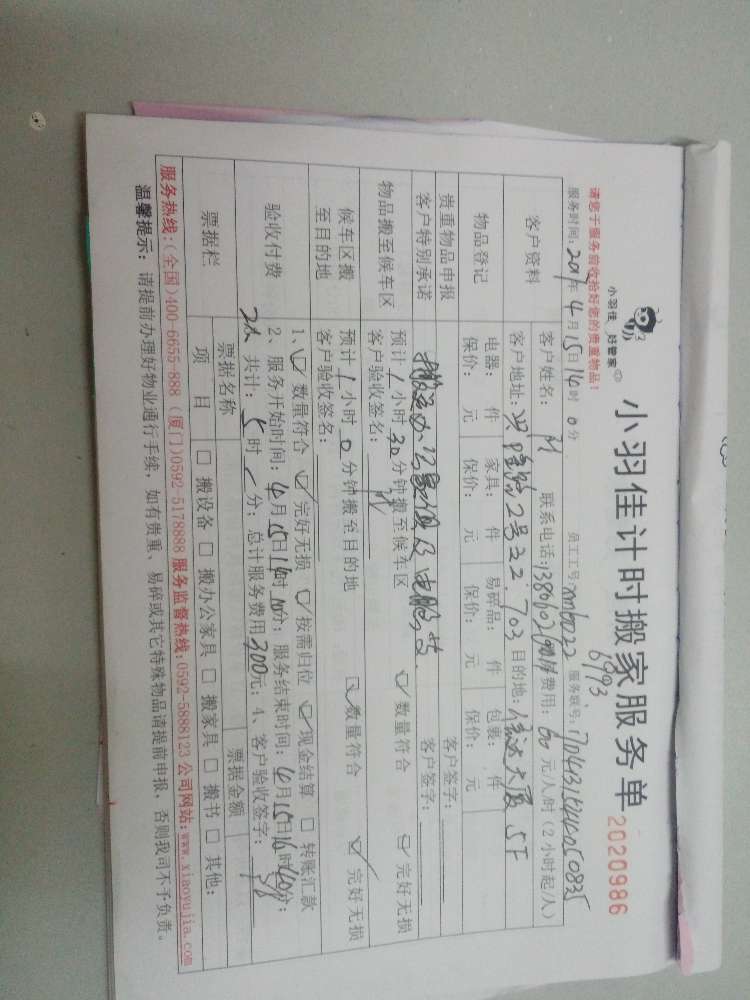 小羽佳 好管家
小羽佳计时搬家服务单
2020986
请您于服务前收拾好您的贵重物品!
6993
服务时间: 2019年4月15日14时0分 员工工号: xmb022 服务联号:
客户资料
客户姓名: 联系电话: 费用: 60元/人/时(2小时起/人)
客户地址: 2号之2. 703 目的地: 大厦5F
物品登记
电器: 件 家具: 件 易碎品: 件 包裹: 件
保价: 元 保价: 元 保价: 元 保价: 元
贵重物品申报 客户签字:
客户特别承诺 搬运办公家俱及电脑 客户签字:
物品搬至候车区
预计1小时30分钟搬至候车区 数量符合 完好无损
客户验收签名:
候车区搬至目的地
预计1小时0分钟搬至目的地 数量符合 完好无损
客户验收签名:
验收付费
1、数量符合 完好无损 按需归位 现金结算 转账汇款
2、服务开始时间: 4月15日14时00分; 服务结束时间: 4月15日16时40分;
2人 共计: 5时 分; 总计服务费用300元; 4、客户验收签字:
票据栏
票据名称 票据金额
项目 搬设备 搬办公家具 搬家具 搬书 其他:
服务热线:(全国)400-6655-888 (厦门)0592-5178888 服务监督热线:0592-5888123 公司网站:www.xiaoyujia.com
温馨提示: 请提前办理好物业通行手续, 如有贵重、易碎或其它特殊物品请提前申报, 否则我司不予负责。